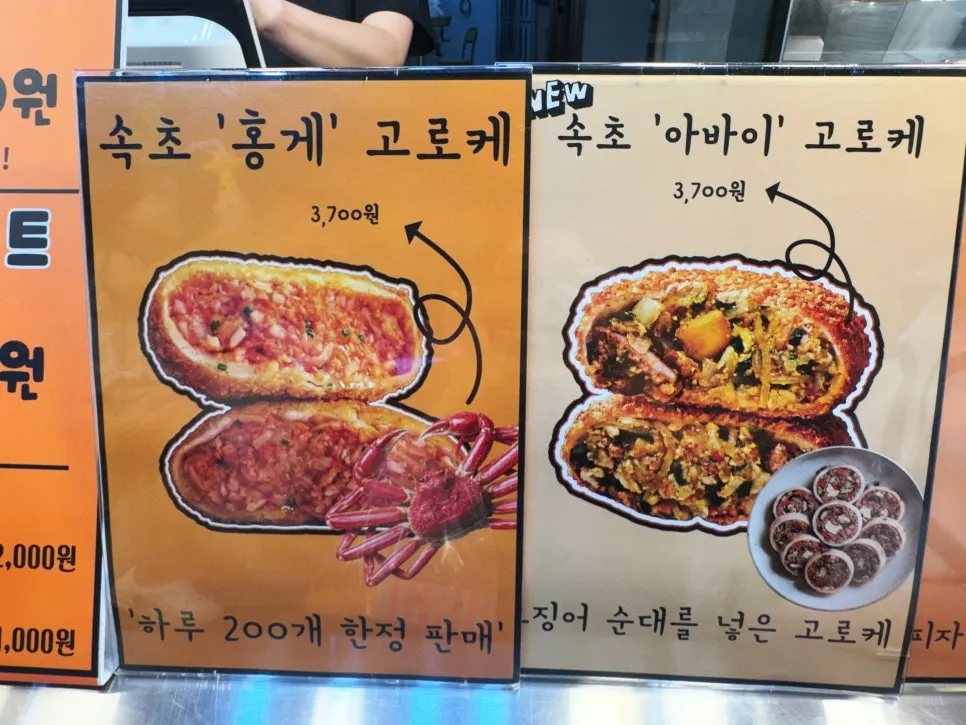 원
!
트
원
2,000원
1,000원
속초 '홍게' 고로케
3,700원
'하루 200개 한정 판매'
NEW
속초 '아바이' 고로케
3,700원
징어 순대를 넣은 고로케
피자